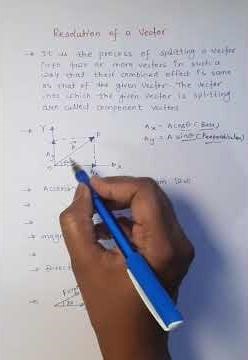 Resolution of a Vector
→ It is the process of splitting a vector
into two or more vectors in such a
way that their combined effect is same
as that of the given vector. The vector
into which the given vector is splitting
are called component vectors.
Ax = A cosθ (Base)
Ay = A sinθ (Perpendicular)
Y
P
Ay
O
X
→ Accord
law
→ magn
→ Direct
→